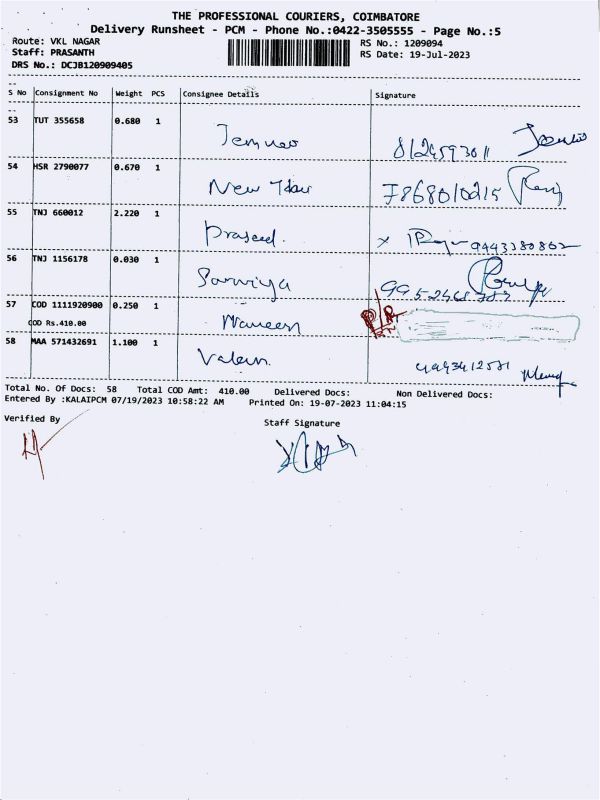 THE PROFESSIONAL COURIERS, COIMBATORE
Delivery Runsheet - PCM - Phone No.:0422-3505555 - Page No.:5
Route: VKL NAGAR RS No.: 1209094
Staff: PRASANTH RS Date: 19-Jul-2023
DRS No.: DCJB120909405
S No Consignment No Weight PCS Consignee Details Signature
53 TUT 355658 0.680 1
54 HSR 2790077 0.670 1 New 7868010215
55 TNJ 660012 2.220 1 Praseed. x 9443380862
56 TNJ 1156178 0.030 1
57 COD 1111920900 0.250 1 Naveen
COD Rs.410.00
58 MAA 571432691 1.100 1
Total No. Of Docs: 58 Total COD Amt: 410.00 Delivered Docs: Non Delivered Docs:
Entered By :KALAIPCM 07/19/2023 10:58:22 AM Printed On: 19-07-2023 11:04:15
Verified By Staff Signature